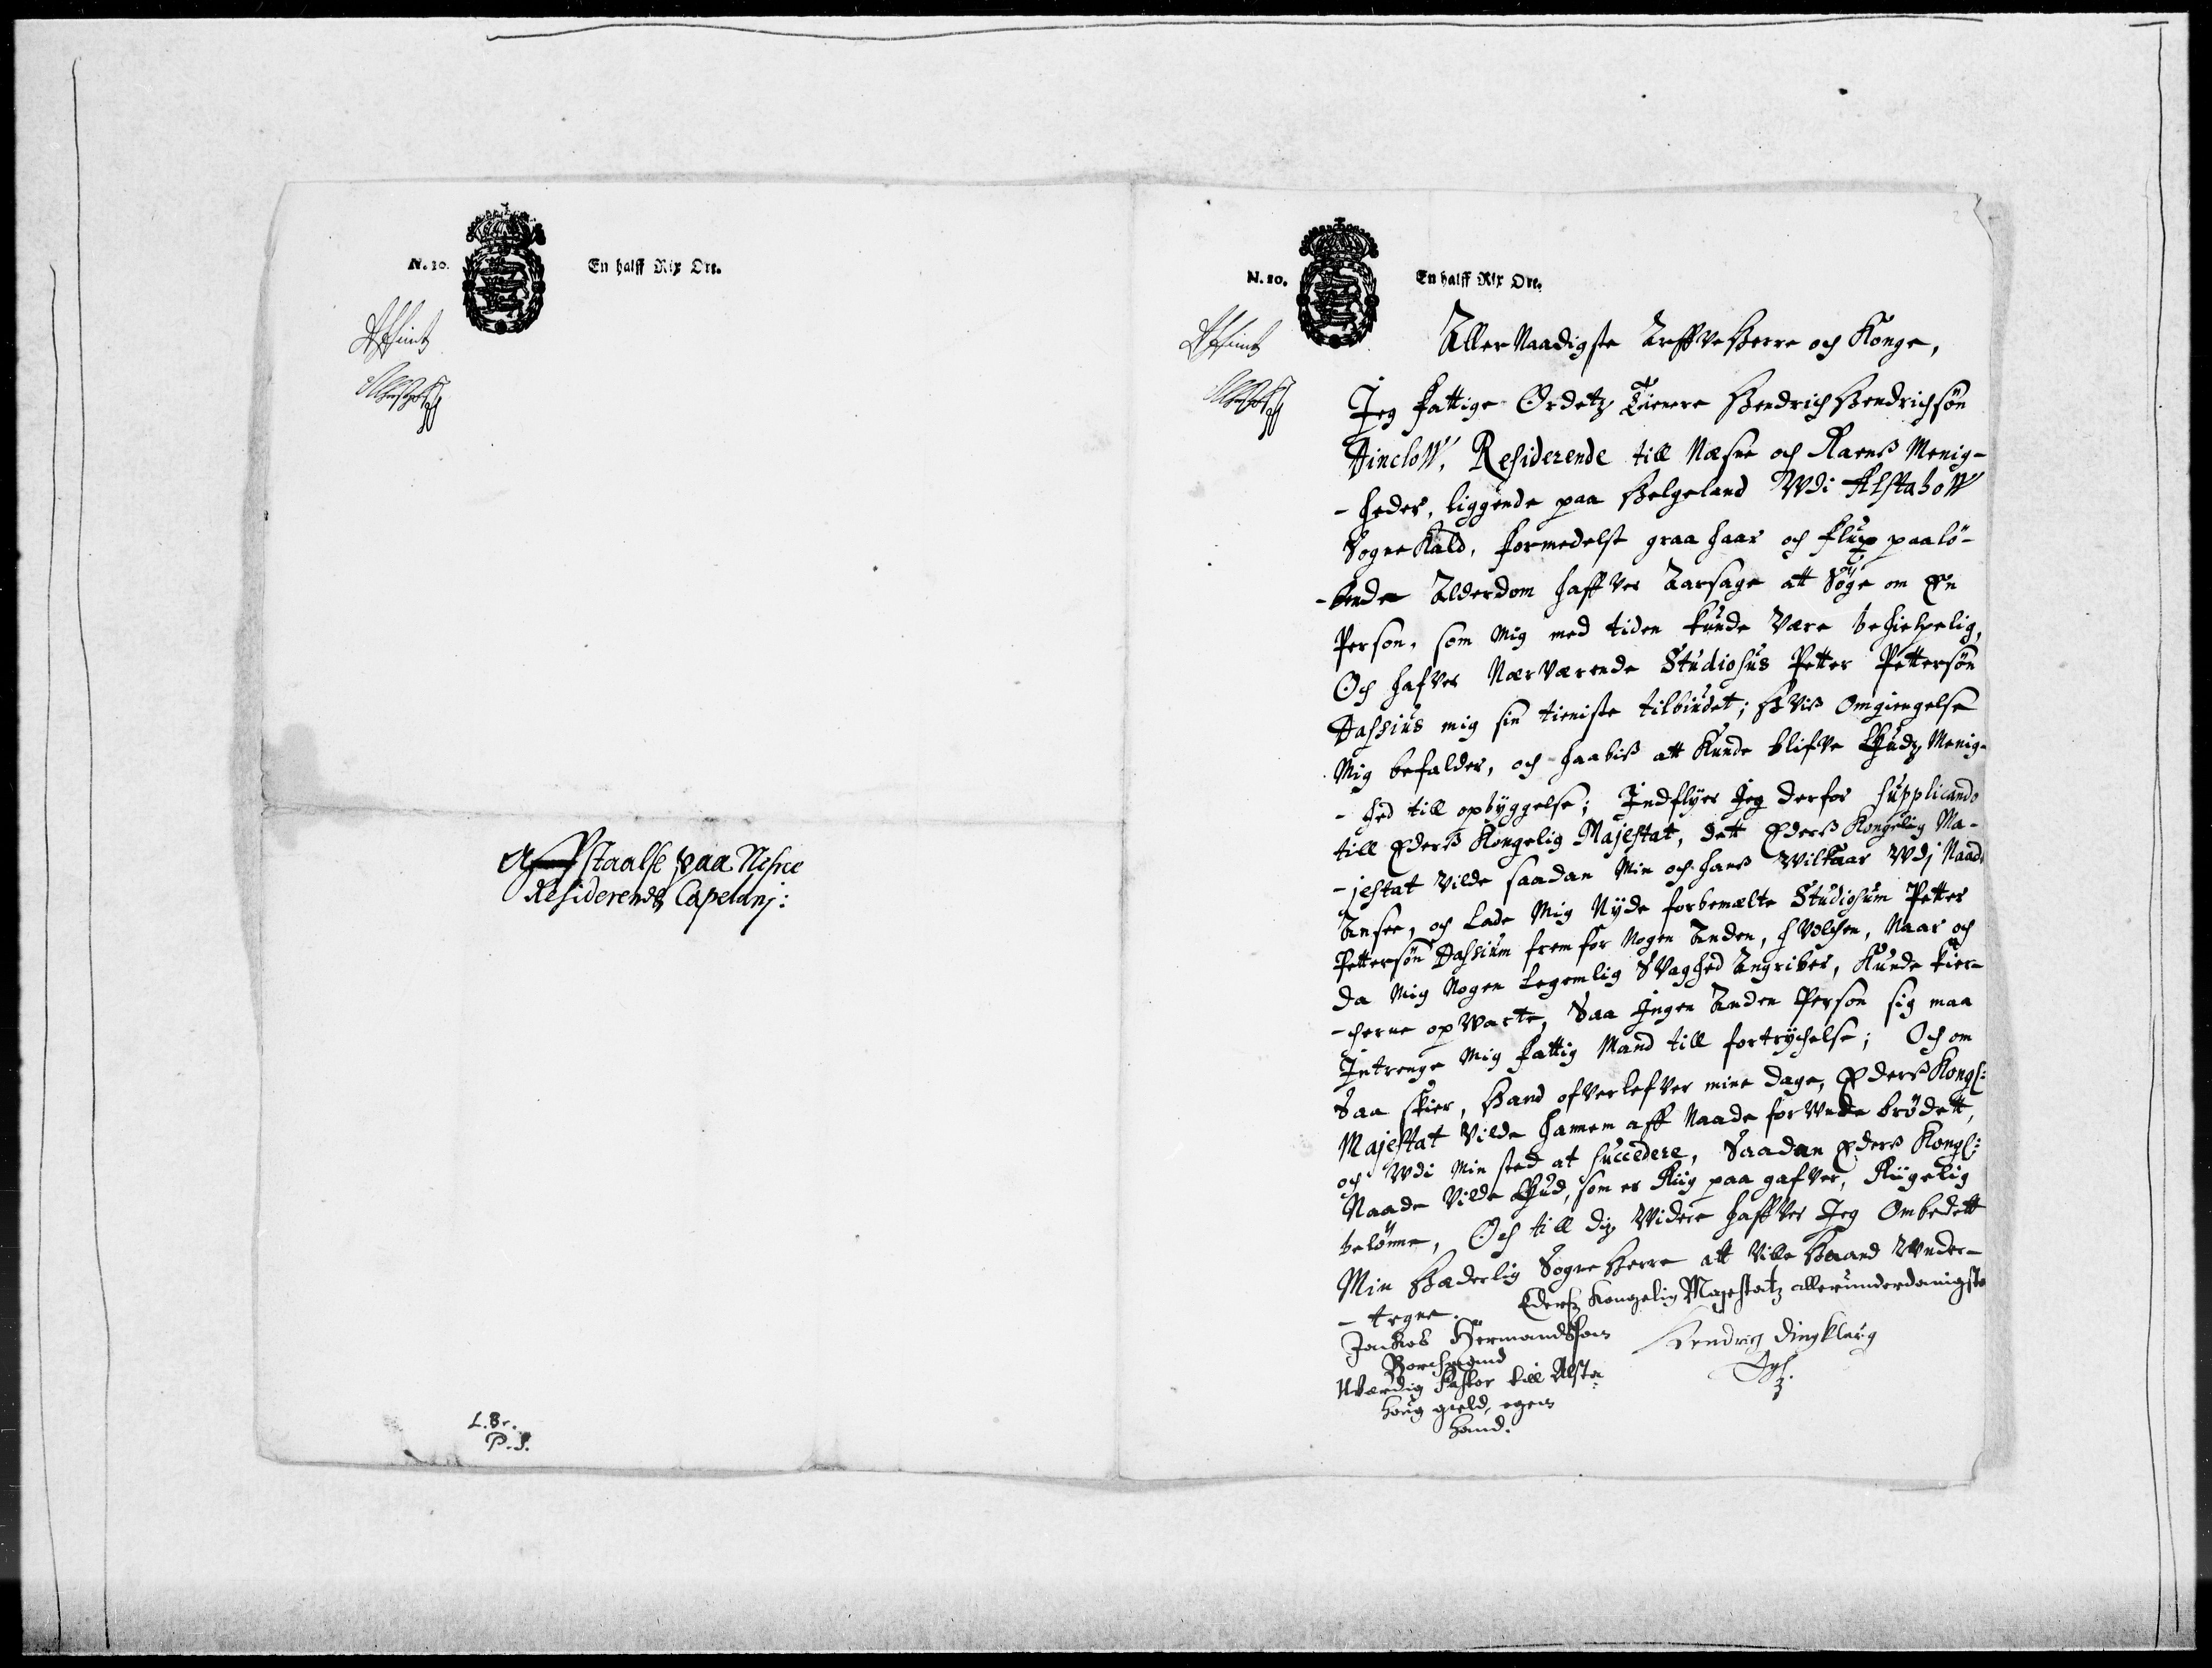 N. 10.
En halff Rix Ort.
Afstaalse paa Nesne
Residerende Capelanj:
L. Br.
P. S.
N. 10.
En halff Rix Ort.
2
Aller Naadigste Arffve Herre och Konge,
Jeg fattige Ordetz Tienere Hendrich Hendrichsøn
Dinclow, Residerende till Næsne och Raens Menig-
- heder, liggende paa Helgeland Wdi Alstahow
Sogne Kald, formedelst graa haar och flux paalø-
- bende Alderdom haffver Aarsage att Søge om En
Person, som Mig med tiden kunde være behielpelig,
Och hafver Nærværende Studiosus Petter Pettersøn
Dassius mig sin tieniste tilbudet; Hvis Omgiengelse
Mig befalder, och haabis att Kunde blifve Gudz Menig-
- hed till opbyggelse; Indflyer Jeg derfor supplicando
till Eders Kongelig Majestat, dett Eders Kongelig Ma-
- jestat vilde saadan Min och hans Wilkaar Wdj Naade
Ansee, och Lade Mig Nyde forbemælte Studiosum Petter
Pettersøn Dassium frem for Nogen Anden, hvilchen, Naar och
da Mig Nogen Legemlig Svaghed Angriber, Kunde kier-
- cherne opwarte, Saa Ingen Anden Person sig maa
Intrenge Mig fattig Mand till fortrychelse; Och om
Saa skier, Hand ofverlefver mine dage, Eders Kongl:
Majestat vilde hannem aff Naade forwnde brødett,
och Wdi Min sted at succedere, Saadan Eders Kongl:
Naade vilde Gud, som er Riig paa gafver, Riigelig
belønne, Och till dis Widere haffver Jeg Ombedett
Min Hæderlig Sogne Herre att ville Haand Wnder-
- tegne.
Edersz Kongelig Majestatz allerunderdanigste
Jackob Hermandsøn
Borchgend
Uværdig Pastor till Alsta:
houg gield, egen
hand.
Hendrich Dingklaug